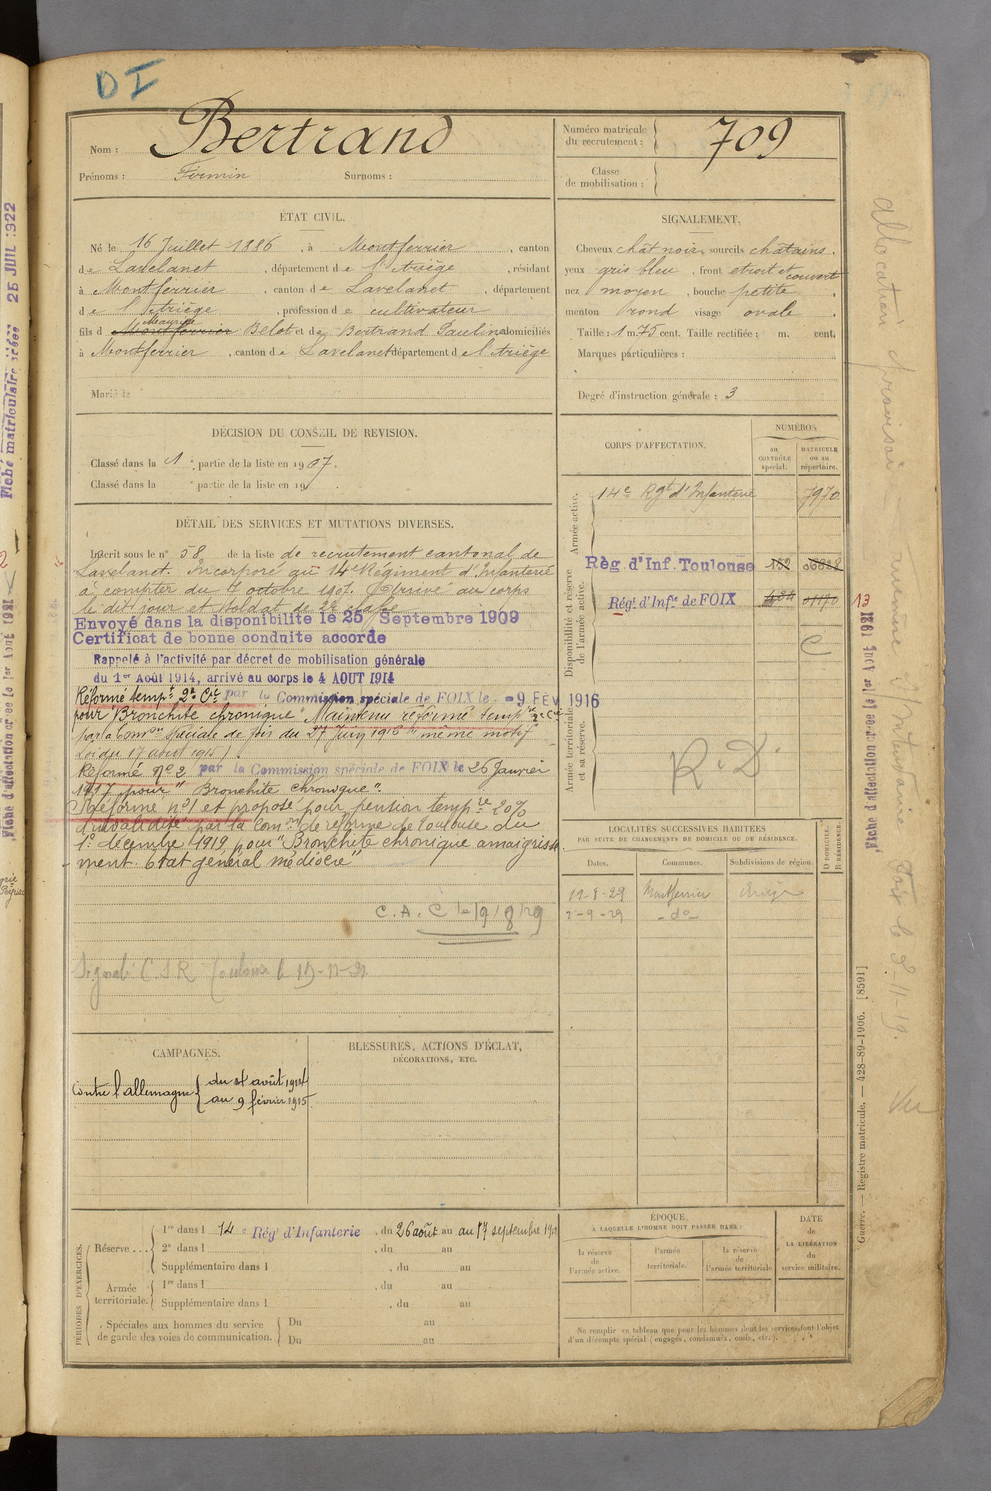 DI
Nom : Bertrand
Prénoms : Firmin Surnoms :
Numéro matricule du recrutement : 709
Classe de mobilisation :
ÉTAT CIVIL.
Né le 16 Juillet 1886, à Montferrier, canton
de Lavelanet, département de l'Ariège, résidant
à Montferrier, canton de Lavelanet, département
de l'Ariège, profession de cultivateur
fils de Maurice Belot et de Bertrand Pauline domiciliés
à Montferrier, canton de Lavelanet département d l'Ariège
Marié le
SIGNALEMENT.
Cheveux chat noir, sourcils chatains,
yeux gris bleu, front etroit et couvert
nez moyen, bouche petite,
menton rond visage ovale,
Taille : 1 m. 75 cent. Taille rectifiée : m. cent.
Marques particulières :
Degré d'instruction générale : 3
DÉCISION DU CONSEIL DE REVISION.
Classé dans la 1e partie de la liste en 1907.
Classé dans la e partie de la liste en 19
DÉTAIL DES SERVICES ET MUTATIONS DIVERSES.
Inscrit sous le n° 58 de la liste de recrutement cantonal de
Lavelanet. Incorporé au 14e Régiment d'Infanterie
à compter du 7 octobre 1907. Arrivé au corps
le dit jour et soldat de 2e classe
Envoyé dans la disponibilité le 25 Septembre 1909
Certificat de bonne conduite accordé
Rappelé à l'activité par décret de mobilisation générale
du 1er Août 1914, arrivé au corps le 4 AOUT 1914
Réformé tempre 2e Cie par la Commission spéciale de FOIX le -9 FÉV 1916
pour "Bronchite chronique" Maintenu réformé tempre 2e Cie
par la Comon spéciale de foix du 27 Juin 1916 "même motif"
Loi du 17 août 1915).
Réformé N°2 par la Commission spéciale de FOIX le 26 Janvier
1917 pour "Bronchite chronique".
Réformé n°1 et proposé pour pension tempre 20%
d'invalidité par la Comon de réforme de Toulouse du
1er décembre 1919 pour "Bronchite chronique amaigrisse
ment. état général médiocre"
C. A. C le 19/8/29
Signalé C.S.R. Toulouse le
CORPS D'AFFECTATION.
NUMÉROS
au CONTRÔLE spécial.
MATRICULE ou au répertoire.
Armée active.
14e Rgt d'Infanterie 7970
Disponibilité et réserve de l'armée active.
Règ. d'Inf. Toulouse
Régt d'Infie de FOIX
C
Armée territoriale et sa réserve.
R. D.
LOCALITÉS SUCCESSIVES HABITÉES
PAR SUITE DE CHANGEMENTS DE DOMICILE OU DE RÉSIDENCE.
Dates. Communes. Subdivisions de région. D DOMICILE. R RÉSIDENCE.
19-8-29 Montferrier Ariège
2-9-29 - do -
CAMPAGNES.
Contre l'allemagne { du 4 août 1914
au 9 février 1915.
BLESSURES, ACTIONS D'ÉCLAT,
DÉCORATIONS, ETC.
PÉRIODES D'EXERCICES.
Réserve... 1re dans l 14e Régt d'Infanterie, du 26 août au au 17 septembre
2e dans l , du au
Supplémentaire dans l , du au
Armée territoriale. 1re dans l , du au
Supplémentaire dans l , du au
Spéciales aux hommes du service Du au
de garde des voies de communication. Du au
ÉPOQUE
À LAQUELLE L'HOMME DOIT PASSER DANS :
la réserve de l'armée active.
l'armée territoriale.
la réserve de l'armée territoriale
DATE de LA LIBÉRATION du service militaire.
Ne remplir ce tableau que pour les hommes dont les services font l'objet
d'un décompte spécial (engagés, condamnés, omis, etc.).
Guerre. — Registre matricule. — 428-89-1906. [8591]
13
Fiche d'affectation créée le 1er Août 1931
Allocation provisoire
Foix le 8-11-19.
Vu
Fiche matriculaire créée 25 JUIL 1922
Fiche d'affectation créée le 1er Août 1931